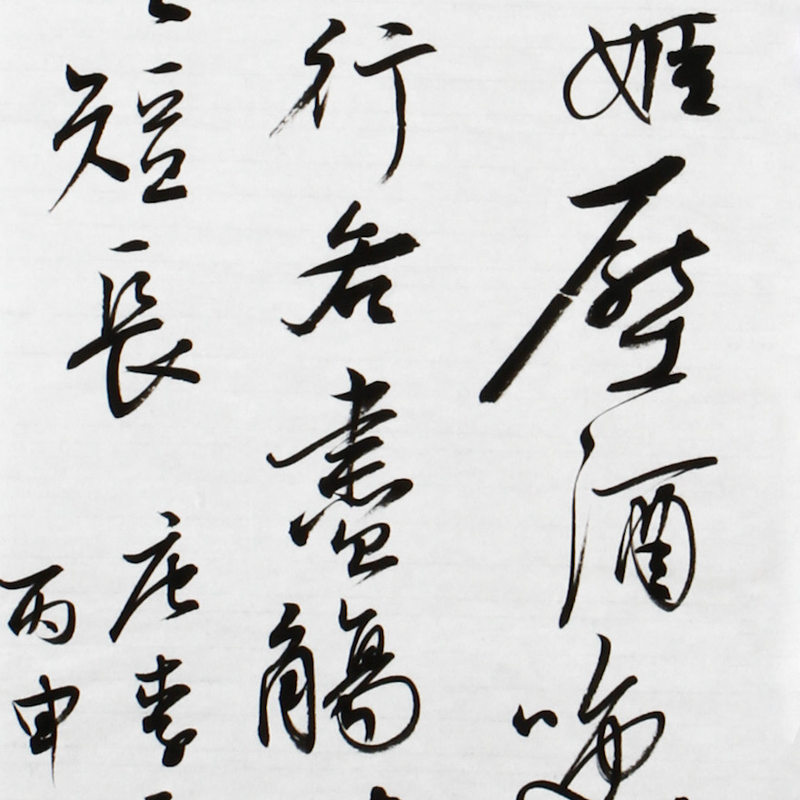 姬壓酒喚
行各盡觴
短長 唐李
丙申